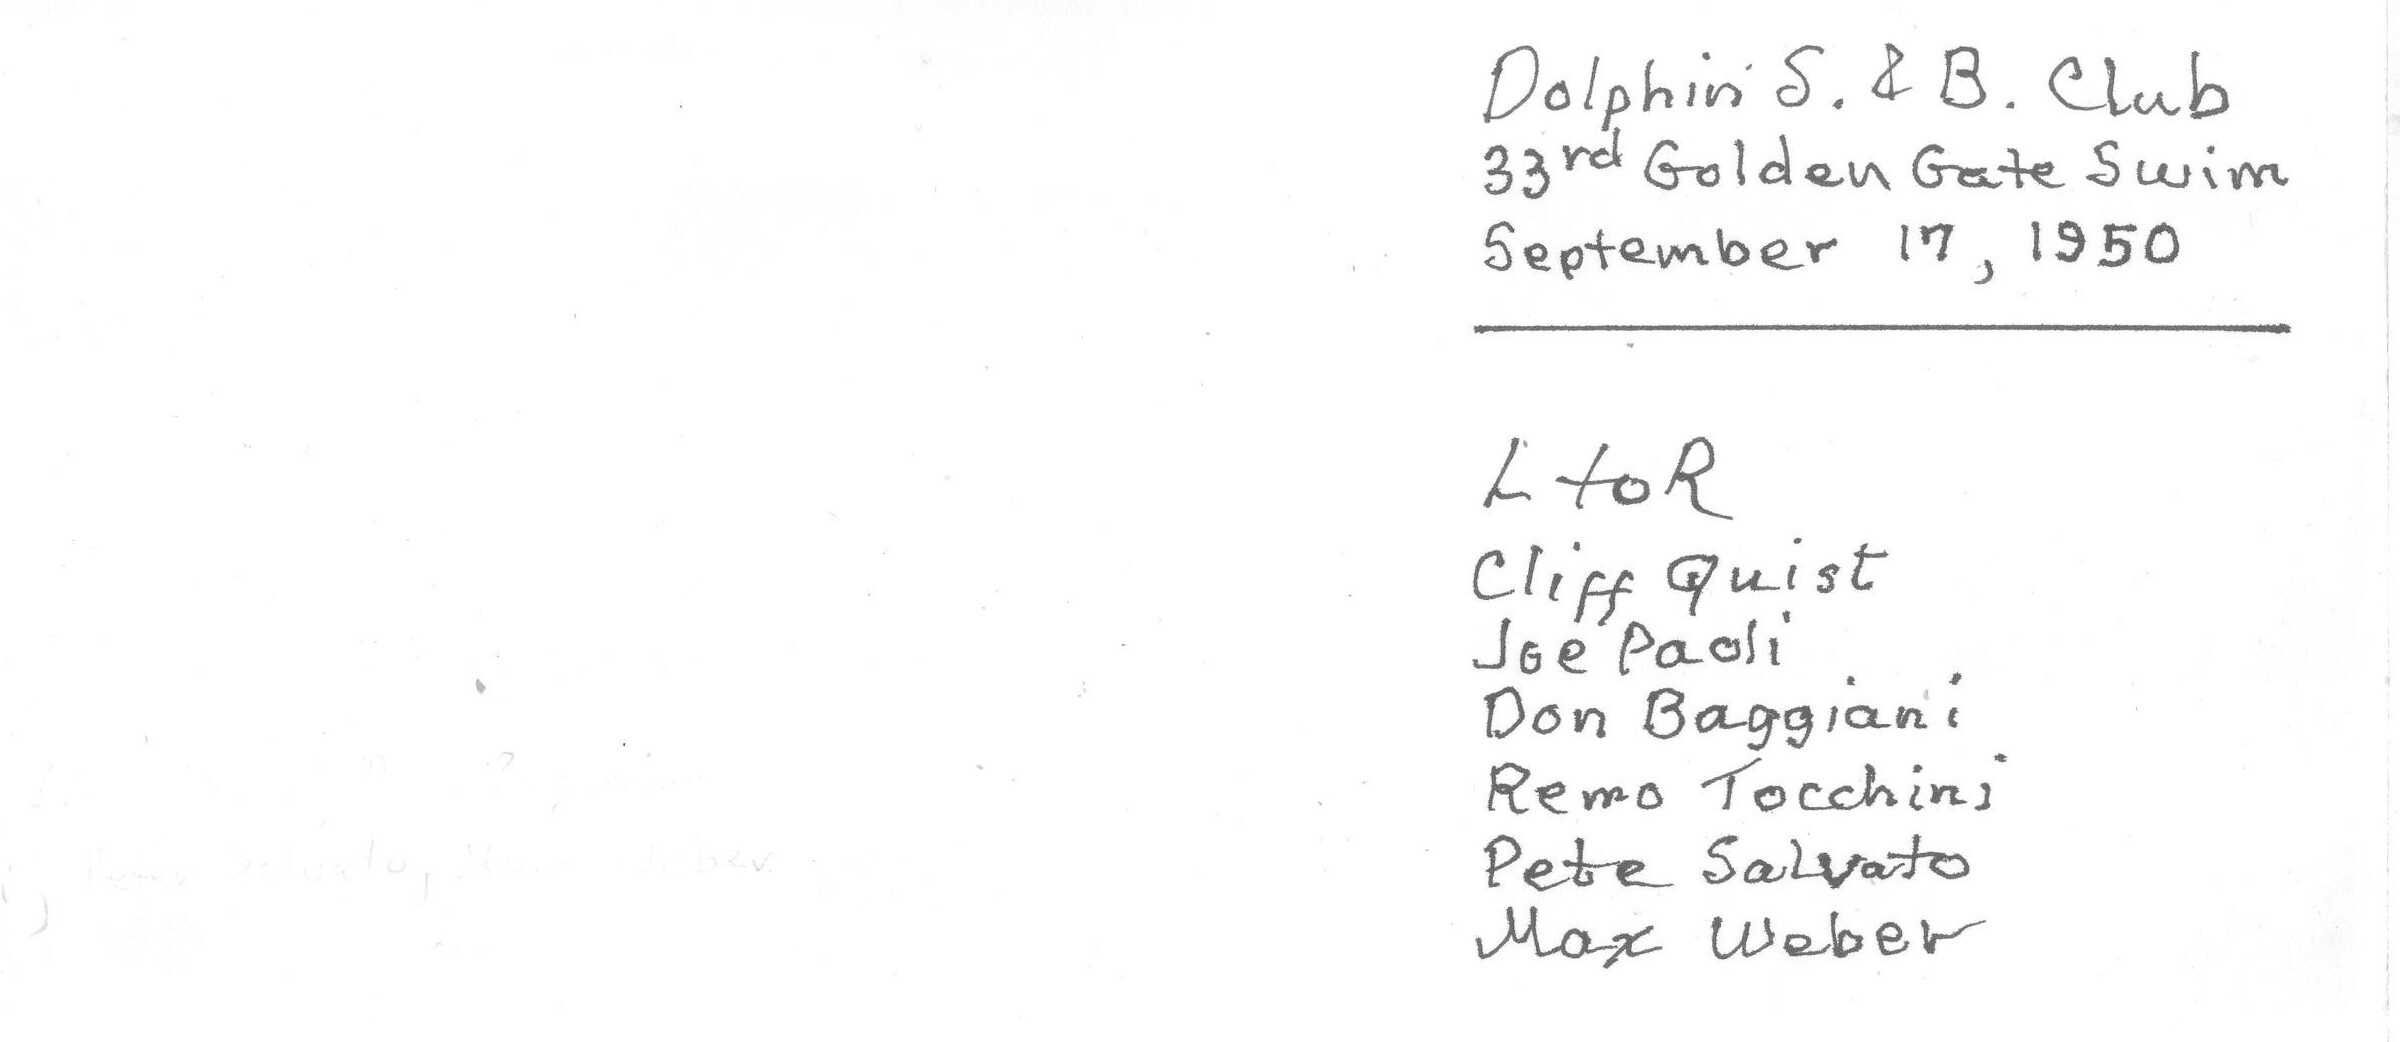 Dolphin S. & B. Club
33rd Golden Gate Swim
September 17, 1950
L to R
Cliff Quist
Joe Paoli
Don Baggiani
Remo Tocchini
Pete Salvato
Max Weber